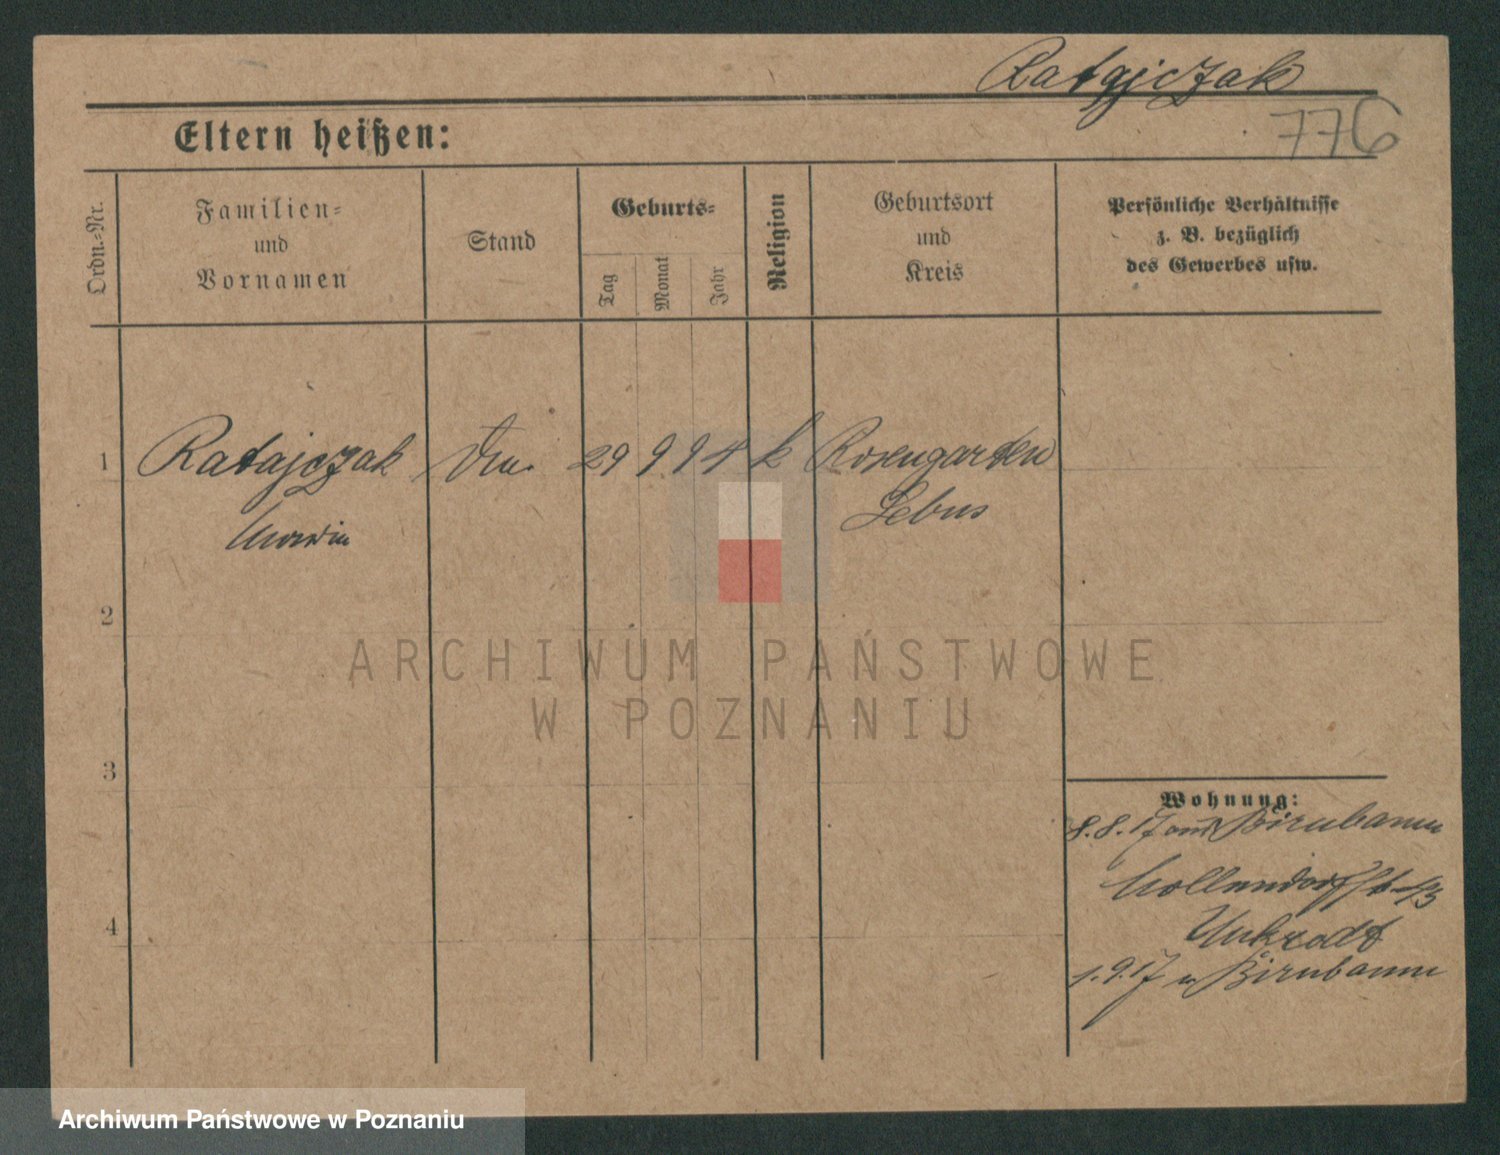 Ratajczak
776
Eltern heißen:
Ordn.-Nr.
Familien-
und
Vornamen
Stand
Geburts-
Tag
Monat
Jahr
Religion
Geburtsort
und
Kreis
Persönliche Verhältnisse
z. B. bezüglich
des Gewerbes usw.
1 Ratajczak 29 9 94 k Rosengarten
Lebus
2
3
4
Wohnung:
8.8.17 Birnbaum
1.9.17 Birnbaum
ARCHIWUM PAŃSTWOWE
W POZNANIU
Archiwum Państwowe w Poznaniu